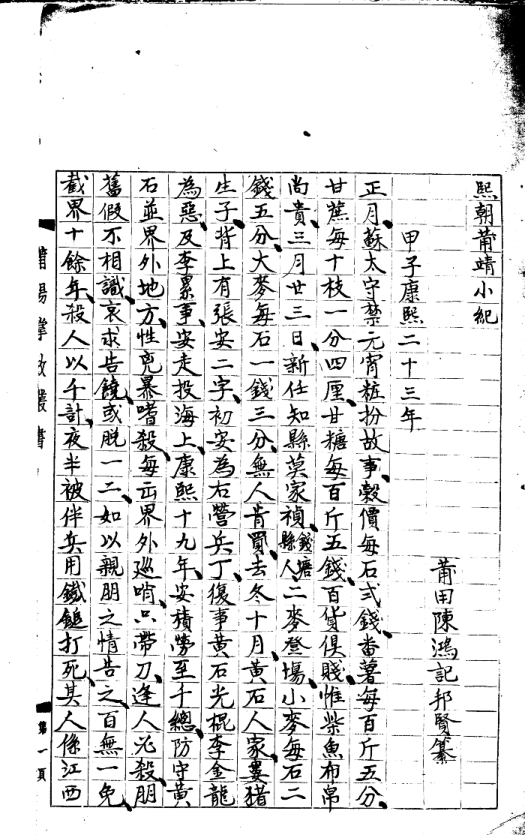 熙朝莆靖小紀
莆田陳鴻記邦賢纂
甲子康熙二十三年
正月、蘇太守禁元宵粧扮故事、穀價每石式錢、番薯每百斤五分、
甘蔗每十枝一分四厘、甘糖每百斤五錢、百貨俱賤、惟柴魚布帛
尚貴、三月廿三日、新任知縣莫家禎、錢塘縣人、二麥登場、小麥每石二
錢五分、大麥每石一錢三分、無人肯買、去冬十月、黃石人家、㜈猪
生子、背上有張安二字、初安為右營兵丁、復事黃石光棍李金龍
為惡、及李累事、安走投海上、康熙十九年、安積勞至千總、防守黃
石並界外地方、性兇暴嗜殺、每出界外巡哨、只帶刀、逢人必殺、朋
舊假不相識、哀求告饒、或脫一二、如以親朋之情告之、百無一免、
截界十餘年、殺人以千計、夜半被伴兵用鐵鎚打死、其人係江西
莆陽掌故叢書
第一頁